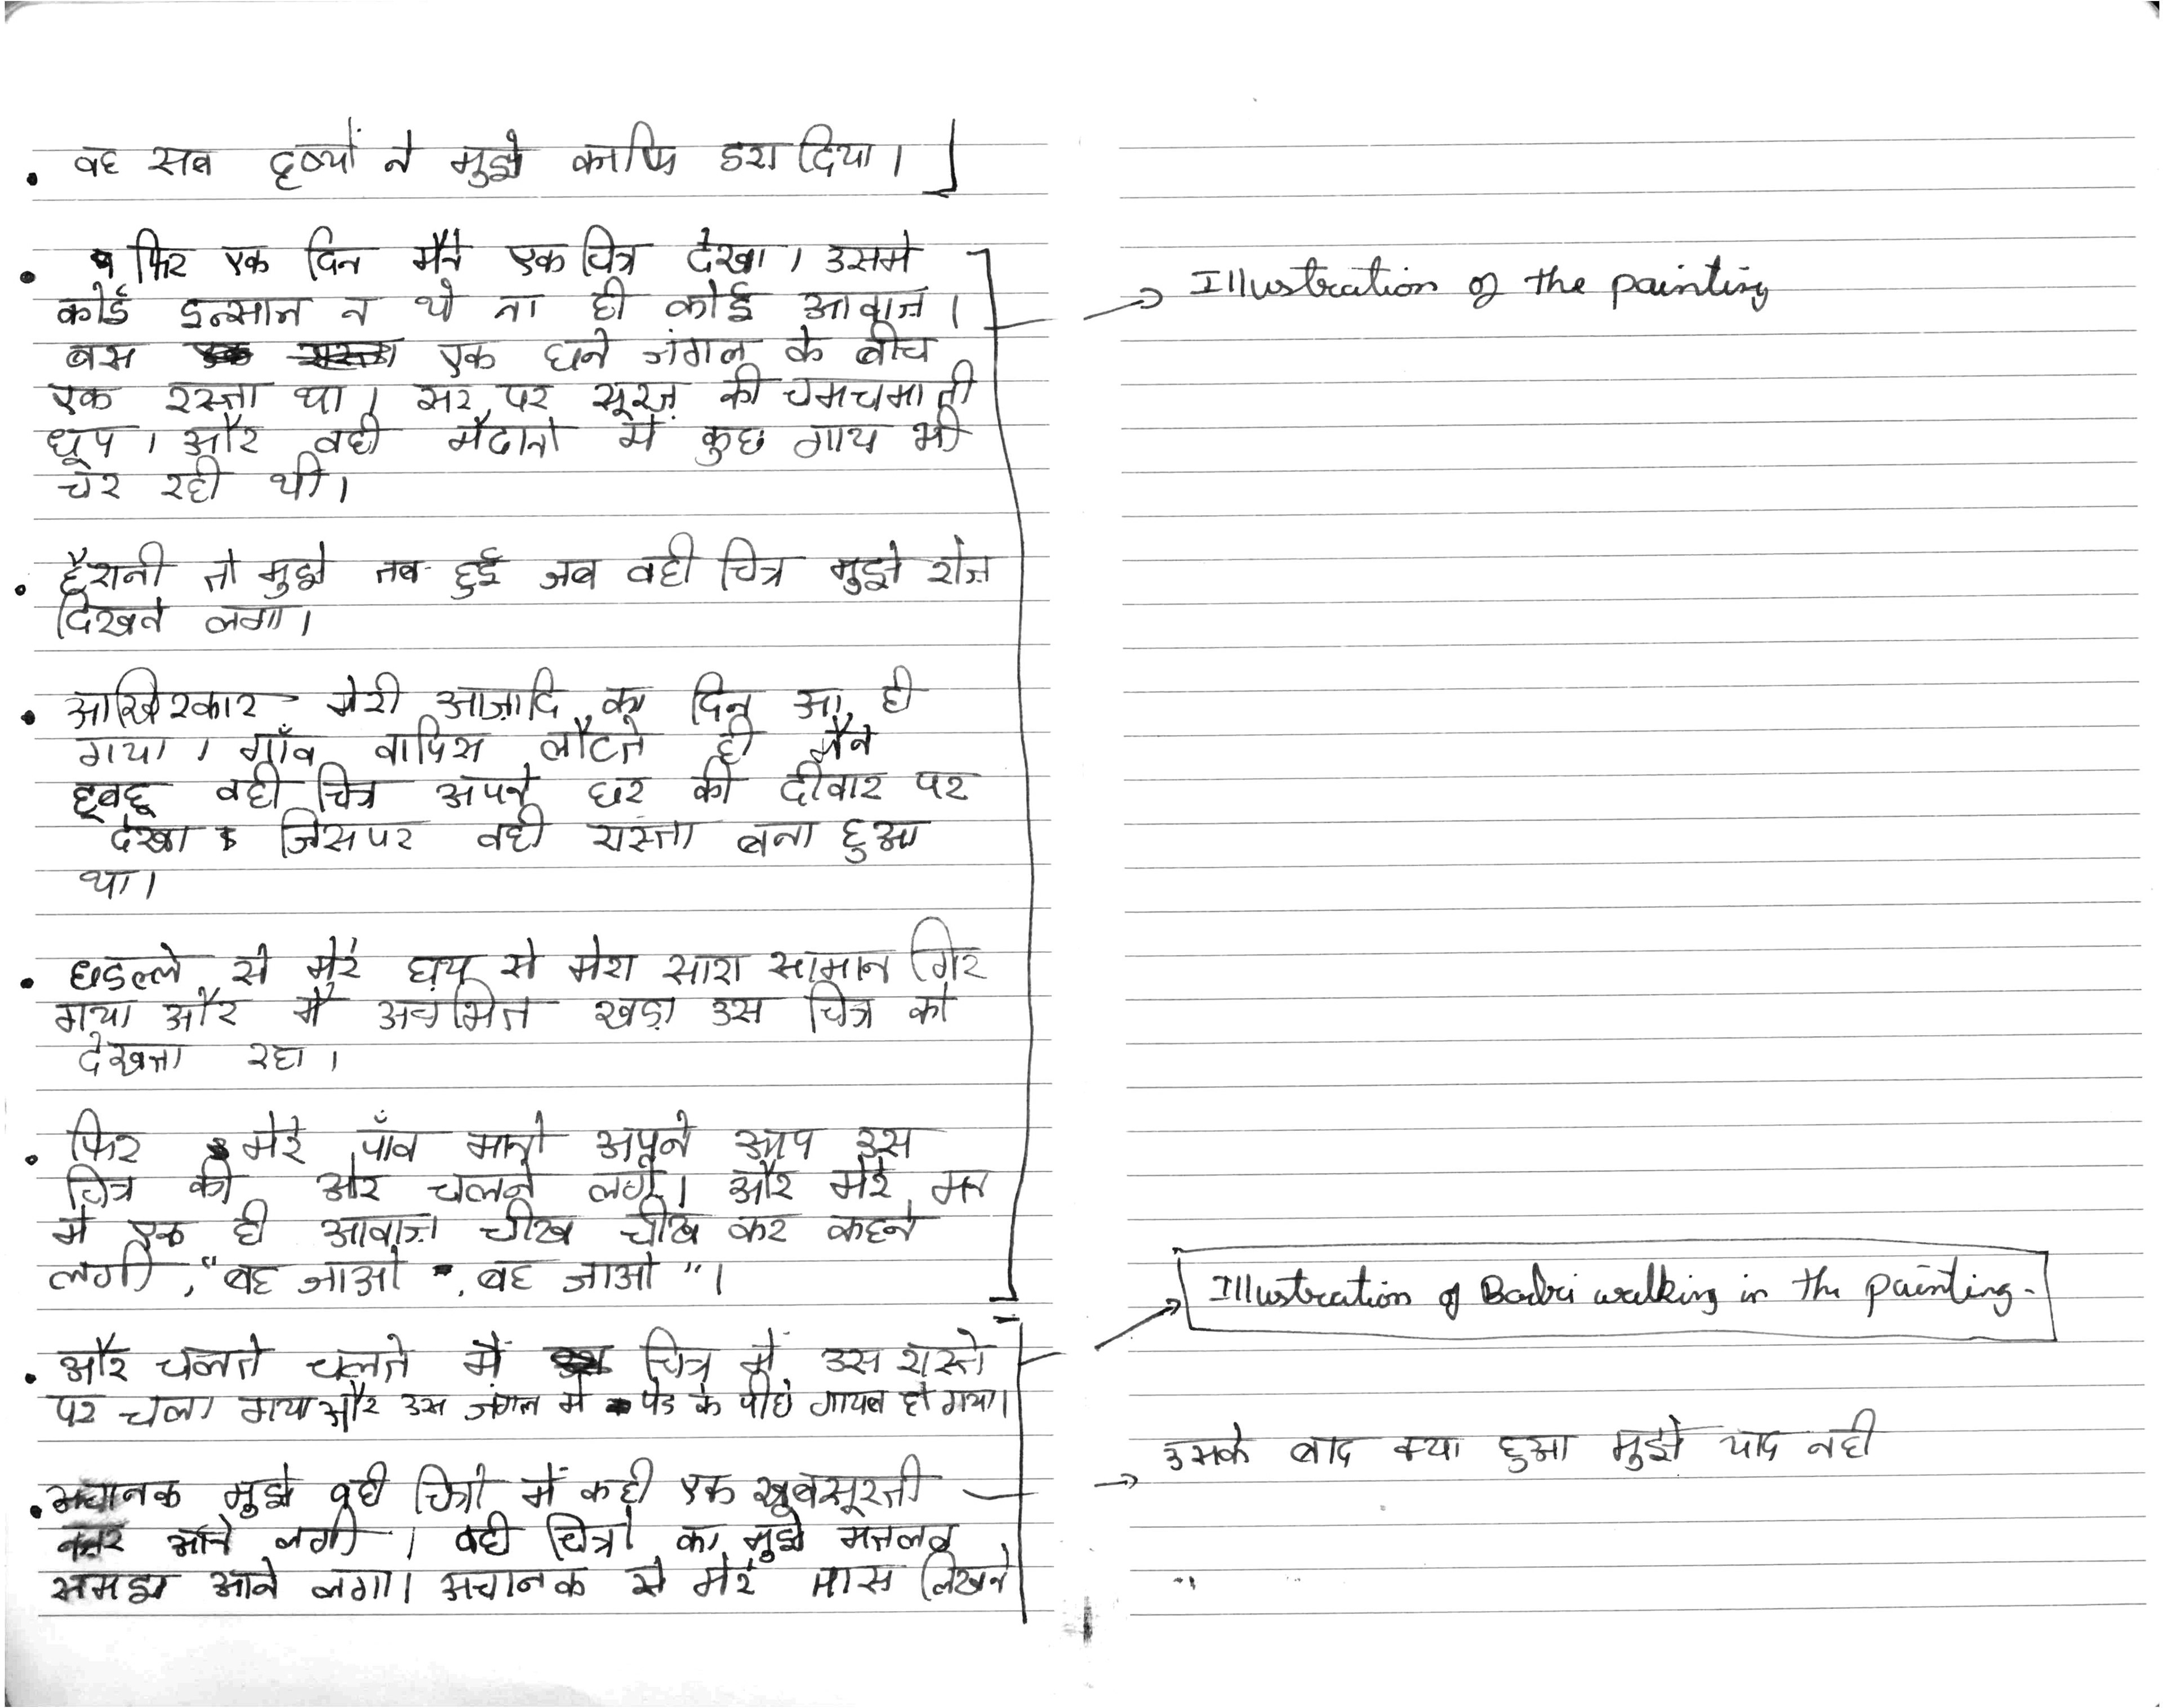 • वह सब दृष्यों ने मुझे काफि डरा दिया।
• फिर एक दिन मैने एक चित्र देखा। उसमे
कोई इन्सान न थे ना ही कोई आवाज़।
बस एक घने जंगल के बीच
एक रस्ता था। सर पर सूरज़ की चमचमाती
धूप। और वही मैदानो में कुछ गाय भी
चर रही थी।
• हैरानी तो मुझे तब हुई जब वही चित्र मुझे रोज़
दिखने लगा।
• आखिरकार मेरी आज़ादि का दिन आ ही
गया। गाँव वापिस लौटते ही मैने
हूबहू वही चित्र अपने घर की दीवार पर
देखा जिसपर वही रास्ता बना हुआ
था।
• धडल्ले से मेरे से मेरा सारा सामान गिर
गया और मै अचंभित खड़ा उस चित्र को
देखता रहा।
• फिर मेरे पाँव मानो अपने आप उस
चित्र की ओर चलने लगे। और मेरे मन
मे एक ही आवाज़ चीख चीख कर कहने
लगी, "बह जाओ, बह जाओ"।
• और चलते चलते मैं चित्र में उस रास्ते
पर चला गया और उस जंगल मे पेड के पीछे गायब हो गया।
• अचानक मुझे वही चित्रो में कही एक खूबसूरती
नज़र आने लगी। वही चित्रो का मुझे मतलब
समझ आने लगा। अचानक से मेरे पास लिखने
Illustration of the painting
Illustration of Badri walking in the painting.
उसके बाद क्या हुआ मुझे याद नही